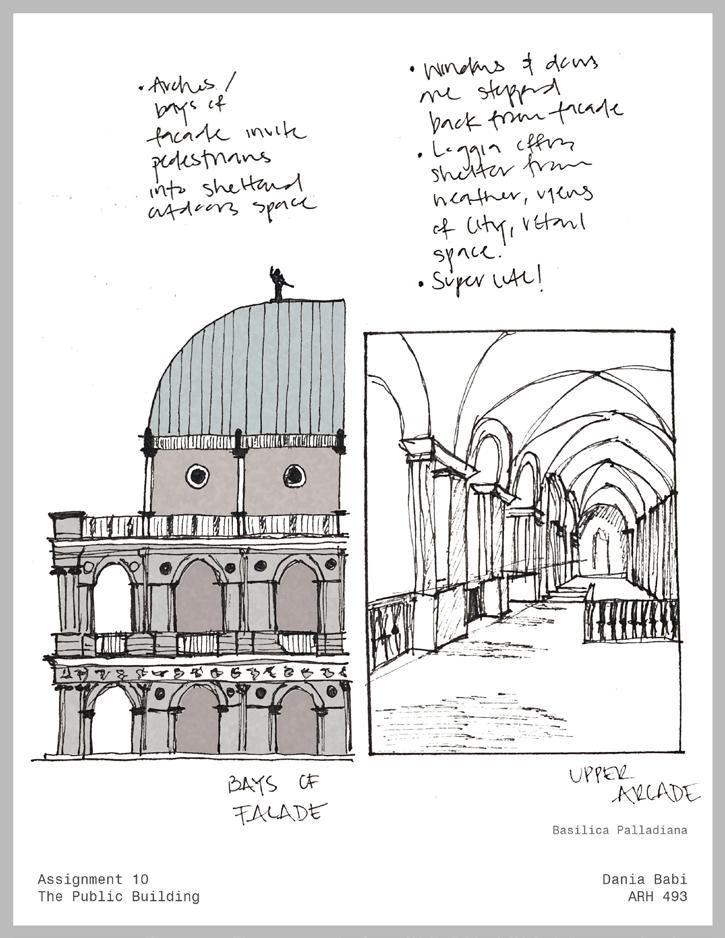 • Arches /
bays of
facade invite
pedestrians
into sheltered
outdoors space
• Windows & doors
are stepped
back from facade
• Loggia offers
shelter from
weather, views
of city, retail
space.
• Super cute!
BAYS OF
FACADE
UPPER
ARCADE
Basilica Palladiana
Assignment 10
The Public Building
Dania Babi
ARH 493